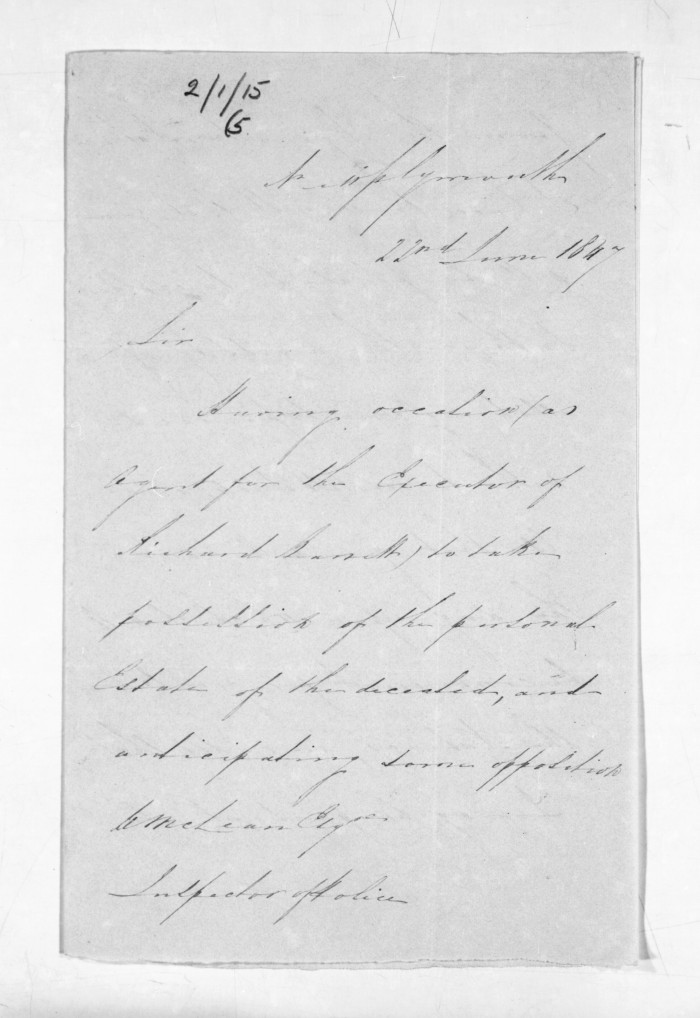 2/1/15
(5
New Plymouth
22nd June 1847
Sir
Having occasion (as
Agent for the Executor of
Richard Barrett) to take
possession of the personal
Estate of the deceased, and
anticipating some opposition
McLean Esqre
Inspector of Police